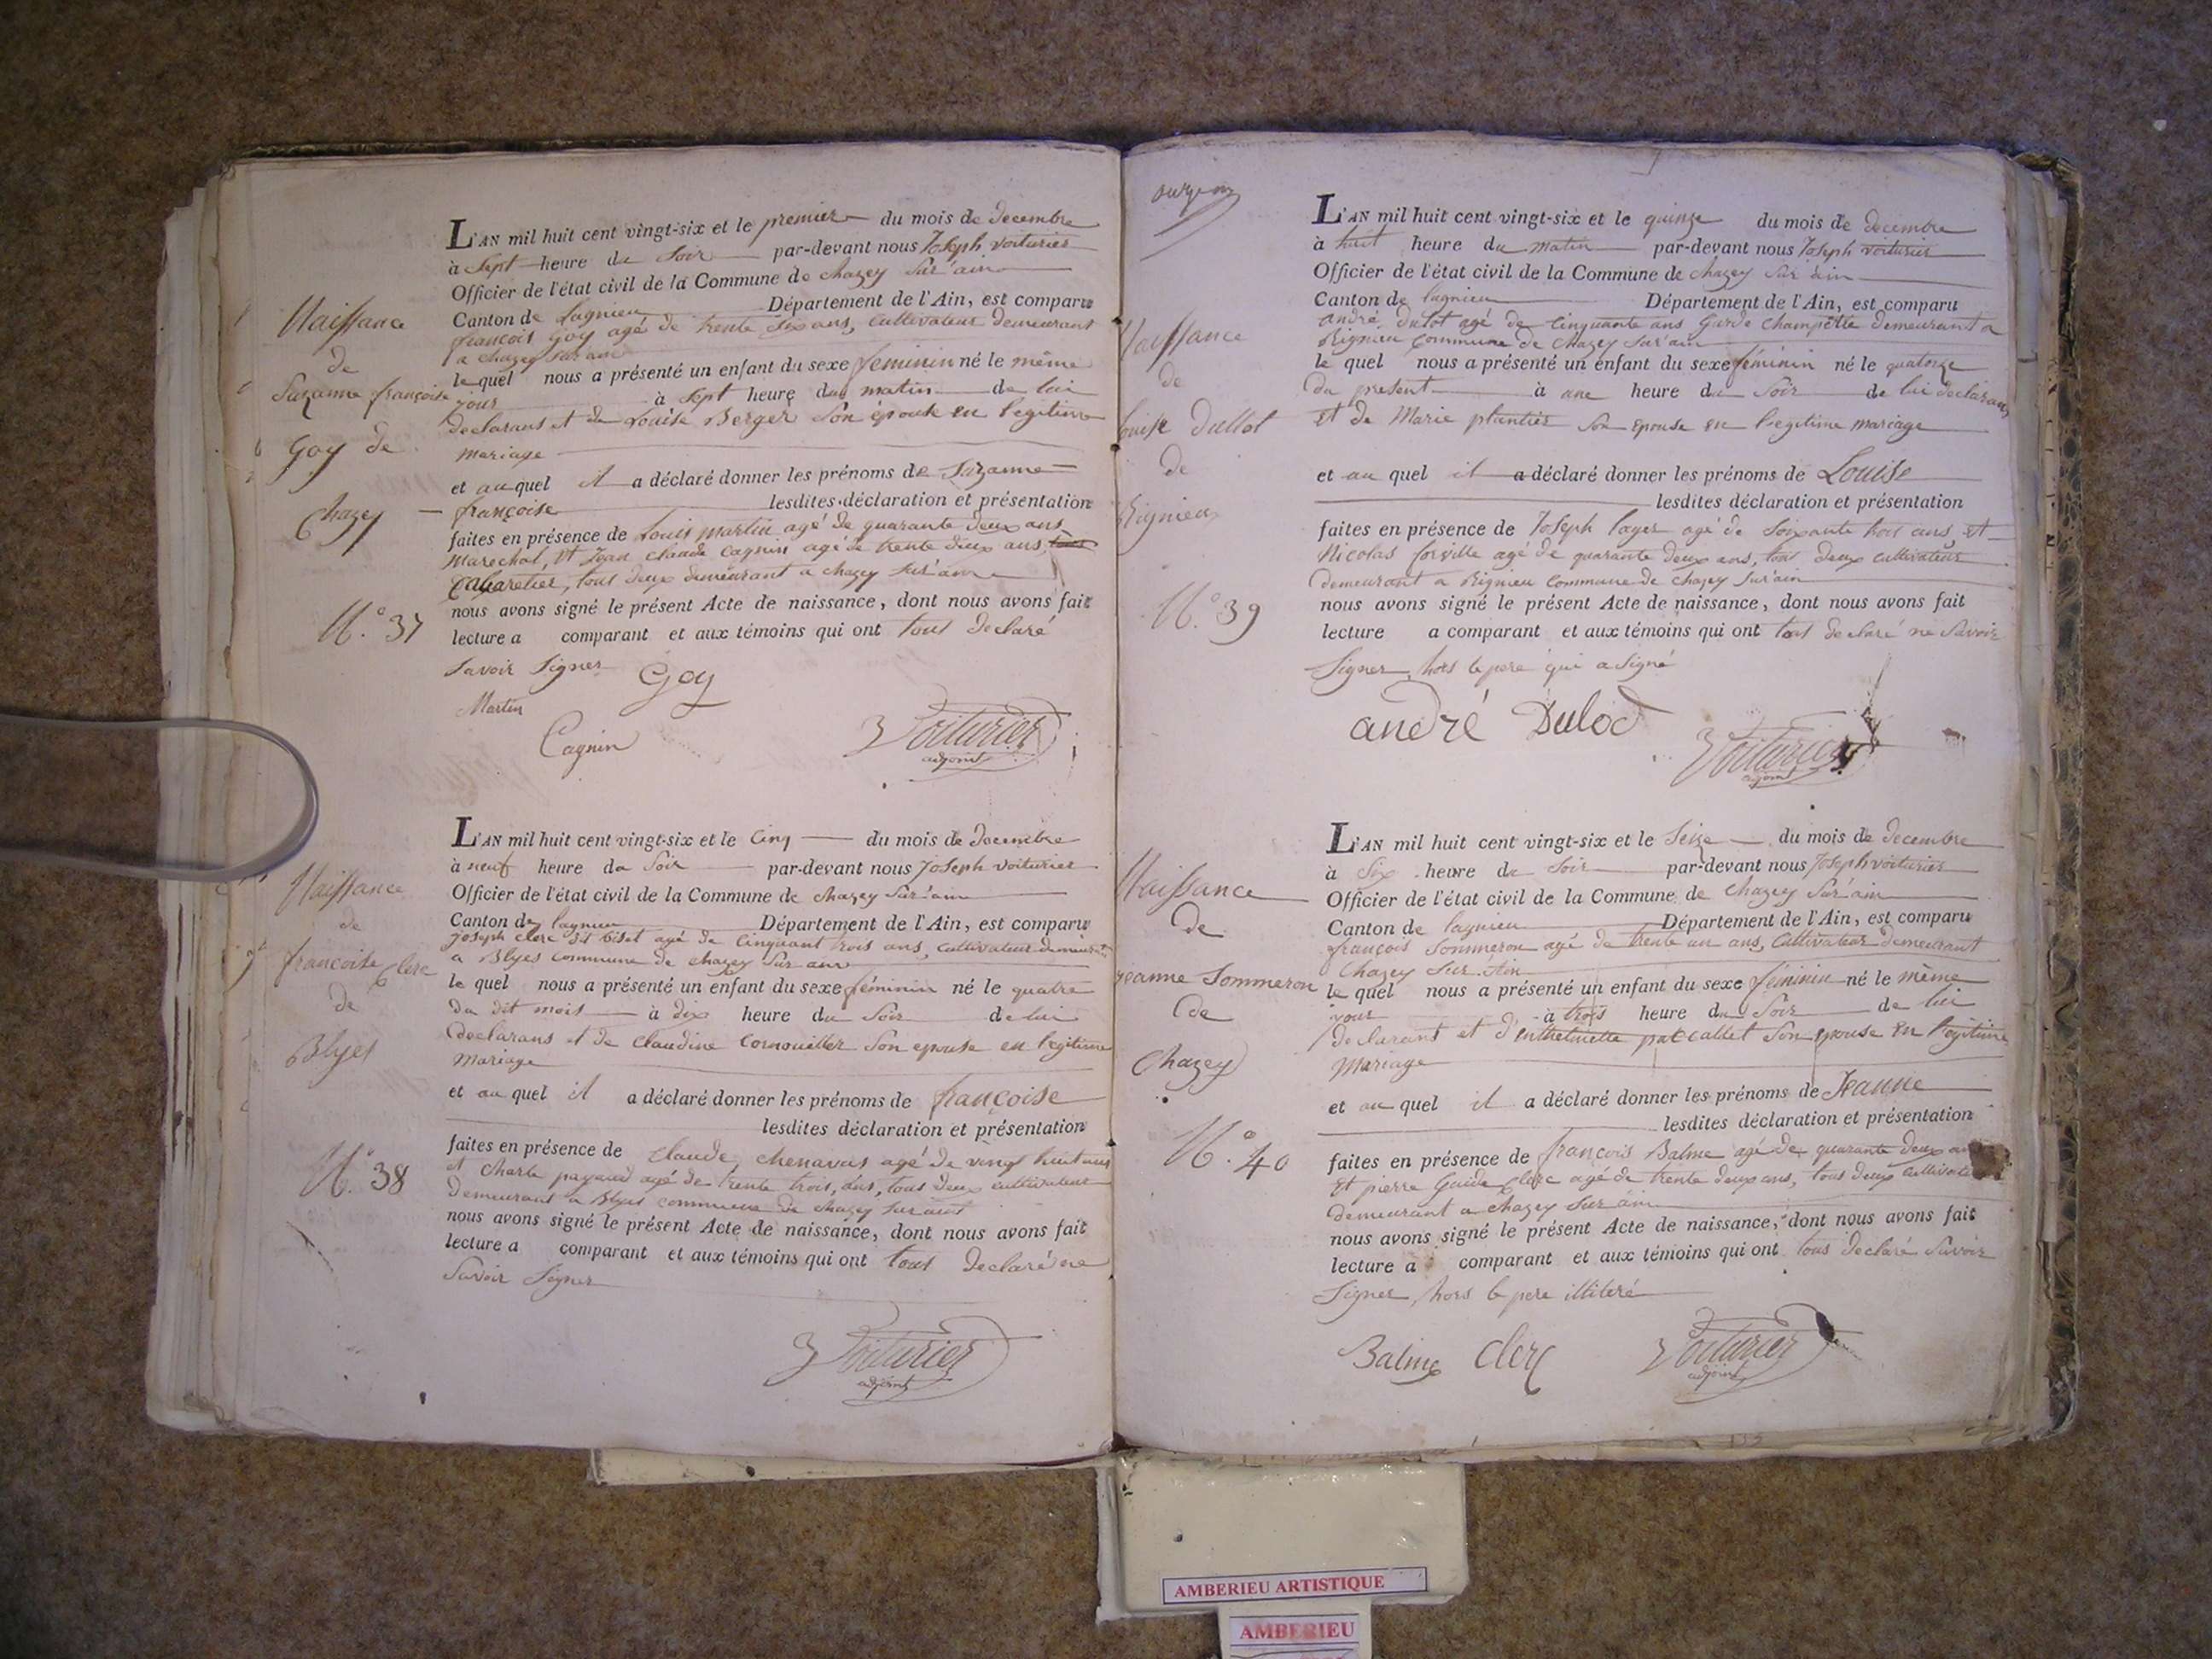 L'AN mil huit cent vingt-six et le premier du mois de decembre
à Sept heure du Soir par-devant nous Joseph voiturier
Officier de l'état civil de la Commune de chazey Sur'ain
Canton de Lagnieu Département de l'Ain, est comparu
françois Goy agé de trente six ans, cultivateur demeurant
a chazey sur ain
le quel nous a présenté un enfant du sexe féminin né le même
jour à Sept heure du matin de lui
declarans et de Louise Berger Son épouse en legitime
mariage
et au quel il a déclaré donner les prénoms de Suzanne
françoise lesdites déclaration et présentation
faites en présence de Louis martin agé de quarante deux ans
Marechal, et Jean claude Cagnin agé de trente deux ans
Cabaretier, tous deux demeurant a chazey Sur'ain
nous avons signé le présent Acte de naissance, dont nous avons fait
lecture a comparant et aux témoins qui ont tous declaré
Savoir Signer
Goy
Martin
Cagnin
Voiturier
adjoint
Naissance
de
Suzanne françoise
Goy de
Chazey
N.° 37
L'AN mil huit cent vingt-six et le Cinq du mois de decembre
à neuf heure du Soir par-devant nous Joseph voiturier
Officier de l'état civil de la Commune de chazey Sur'ain
Canton de lagnieu Département de l'Ain, est comparu
Joseph clerc dit biset agé de Cinquant trois ans, cultivateur demeurant
a Blyes commune de chazey Sur ain
le quel nous a présenté un enfant du sexe féminin né le quatre
du dit mois à dix heure du Soir de lui
declarans et de Claudine Cornouiller Son epouse en legitime
mariage
et au quel il a déclaré donner les prénoms de françoise
lesdites déclaration et présentation
faites en présence de Claude chenavas agé de vingt huit ans
et Charle payaud agé de trente trois ans, tous deux cultivateur
demeurant a Blyes commune de chazey Sur ain
nous avons signé le présent Acte de naissance, dont nous avons fait
lecture a comparant et aux témoins qui ont tous declaré ne
Savoir Signer
Voiturier
adjoint
Naissance
de
françoise clerc
de
Blyes
N.° 38
L'AN mil huit cent vingt-six et le quinze du mois de decembre
à huit heure du matin par-devant nous Joseph voiturier
Officier de l'état civil de la Commune de chazey Sur ain
Canton de lagnieu Département de l'Ain, est comparu
andré dulot agé de Cinquante ans Garde Champêtre demeurant a
Rignieu commune de Chazey Sur'ain
le quel nous a présenté un enfant du sexe féminin né le quatorze
du present à une heure du Soir de lui declarans
et de Marie plantier Son epouse en legitime mariage
et au quel il a déclaré donner les prénoms de Louise
lesdites déclaration et présentation
faites en présence de Joseph layer agé de Soixante trois ans, et
Nicolas agé de quarante deux ans, tous deux cultivateur
demeurant a Rignieu commune de chazey Sur'ain
nous avons signé le présent Acte de naissance, dont nous avons fait
lecture a comparant et aux témoins qui ont tous declaré ne Savoir
Signer, hors le pere qui a Signé
andré Dulod
Voiturier
adjoint
Naissance
de
Louise Dullot
de
Rignieu
N.° 39
L'AN mil huit cent vingt-six et le Seize du mois de decembre
à Six heure du Soir par-devant nous Joseph voiturier
Officier de l'état civil de la Commune de Chazey Sur'ain
Canton de lagnieu Département de l'Ain, est comparu
françois Sommeron agé de trente un ans, Cultivateur demeurant
Chazey Sur Ain
le quel nous a présenté un enfant du sexe féminin né le même
jour à trois heure du Soir de lui
declarant et Son epouse en legitime
mariage
et au quel il a déclaré donner les prénoms de Jeanne
lesdites déclaration et présentation
faites en présence de françois Balme agé de quarante deux
et pierre Guide Clerc agé de trente deux ans, tous deux
demeurant a chazey Sur ain
nous avons signé le présent Acte de naissance, dont nous avons fait
lecture à comparant et aux témoins qui ont tous declaré Savoir
Signer, hors le pere illiteré
Balme Clerc
Voiturier
adjoint
Naissance
de
Jeanne Sommeron
de
Chazey
N.° 40
AMBERIEU ARTISTIQUE
AMBERIEU